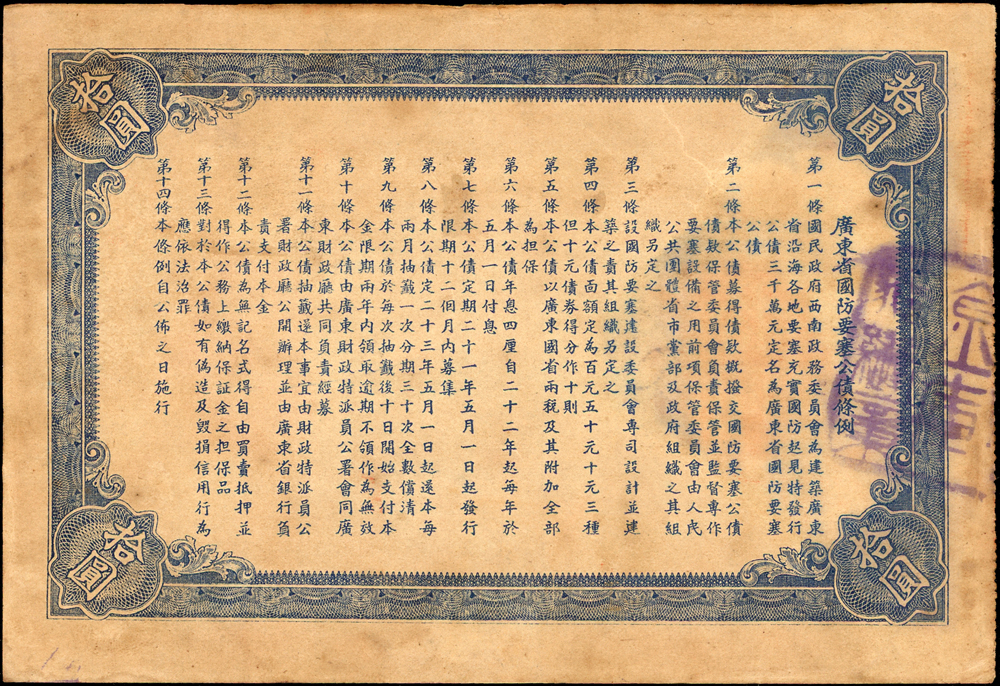 拾圓
拾圓
廣東省國防要塞公債條例
第一條國民政府西南政務委員會為建築廣東
省沿海各地要塞充實國防起見特發行
公債三千萬元定名為廣東省國防要塞
公債
第二條本公債募得債欵概撥交國防要塞公債
債欵保管委員會負責保管並監督專作
要塞設備之用前項保管委員會由人民
公共團體省市黨部及政府組織之其組
織另定之
第三條設國防要塞建設委員會專司設計並建
築之責其組織另定之
第四條本公債面額定為百元五十元十元三種
但十元債券得分作十則
第五條本公債以廣東國省兩稅及其附加全部
為担保
第六條本公債年息四厘自二十二年起每年於
五月一日付息
第七條本公債定期二十一年五月一日起發行
限期十二個月內募集
第八條本公債定二十三年五月一日起還本每
兩月抽籤一次分期三十次全數償清
第九條本公債於每次抽籤後十日開始支付本
金限期兩年內領取逾期不領作為無效
第十條本公債由廣東財政特派員公署會同廣
東財政廳共同負責經募
第十一條本公債抽籤還本事宜由財政特派員公
署財政廳公開辦理並由廣東省銀行負
責支付本金
第十二條本公債為無記名式得自由買賣抵押並
得作公務上繳納保証金之担保品
第十三條對於本公債如有偽造及毀損信用行為
應依法治罪
第十四條本條例自公佈之日施行
拾圓
拾圓